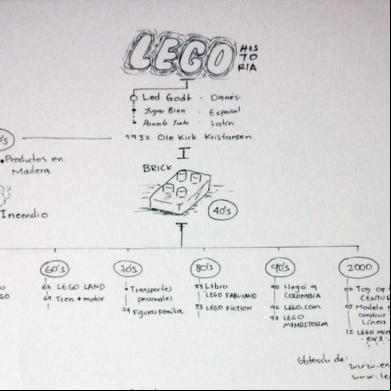 LEGO
HIS
TO
RIA
Led Godt - Danés
Jugar Bien - Español
Latín
1932 Ole Kirk Kristansen
Productos en
Madera.
Incendio
BRICK
40's
60's
LEGO LAND
69 Tren + motor
70's
Transportes
personales
Figuras familia
80's
Libro
LEGO FABULAND
LEGO FICTION
90's
90 llegó a
COLOMBIA
96 LEGO.com
LEGO
MINDSTORM
2000
Toy of
CENTU
Modelo
construir
Línea
12 LEGO MIN
EV3
Obtenido de:
www.en
www.le